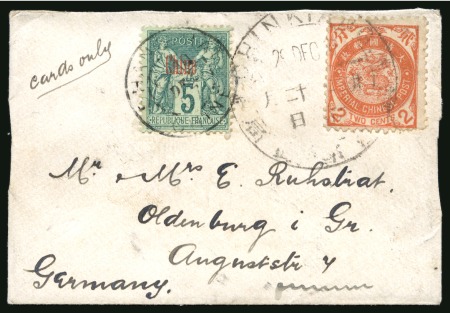 cards only
POSTE
Chine
5
REPUBLIQUE FRANÇAISE
DEC
二十
日
月
IMPERIAL CHINESE POST
2 TWO CENTS 2
Mr & Mrs E. Ruhstrat.
Oldenburg i Gr.
Auguststr 7
Germany.